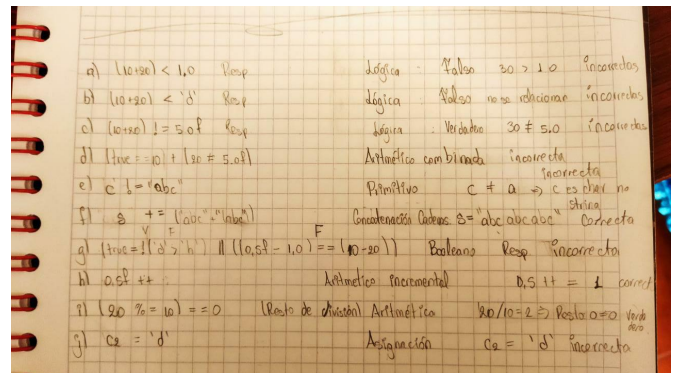 a) (10+20) < 1,0 Resp Lógica : Falso 30 > 1 0 incorrectas
b) (10+20) < 'd' Resp Lógica : Falso no se relacionan incorrectas
c) (10+20) != 5.0f Resp Lógica : Verdadero 30 ≠ 5.0 incorrectas
d) (true == 10) + (20 ≠ 5.0f) Aritmético combinada incorrecta
e) c != "abc" Primitivo c ≠ a => c es char no string incorrecta
f) s += ("abc"+"abc") Concatenación Cadenas s="abc abcabc" Correcta
V F F
g) (true =! ('d'>'h') || ((0,5f - 1,0) == (10-20)) Booleano Resp incorrecta
h) 0.5f ++ Aritmetico incremental 0,5 ++ = 1 correct
i) (20 %= 10) == 0 (Resto de división) Aritmética 20/10=2 => Resto 0=0 Verdadero
j) c2 = 'd' Asignación c2 = 'd' incorrecta